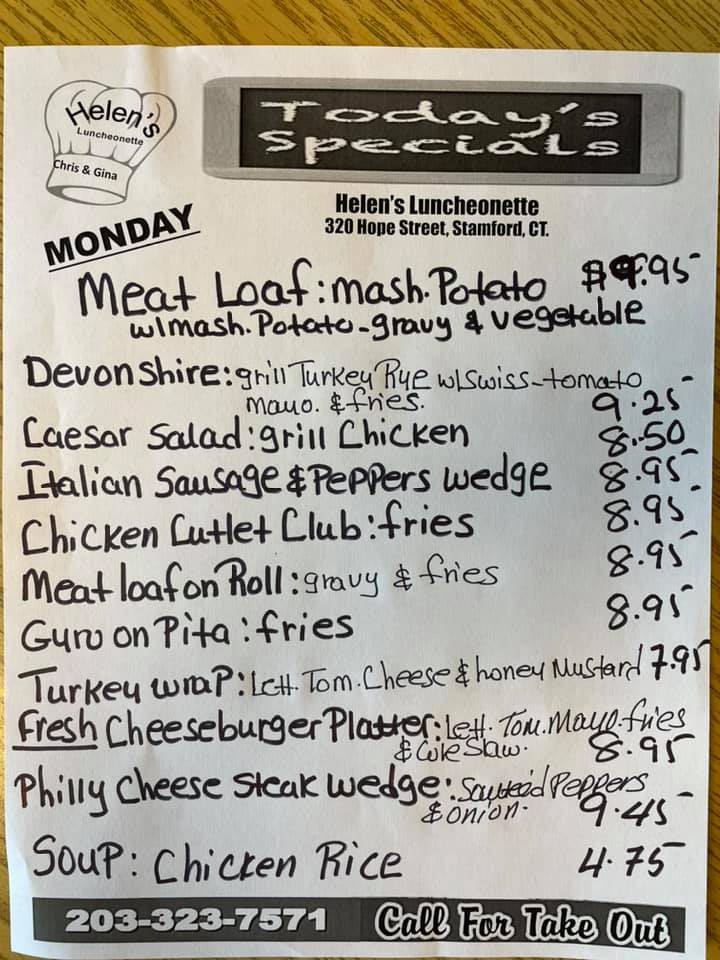 Helen's
Luncheonette
Chris & Gina
Today's
Specials
Helen's Luncheonette
320 Hope Street, Stamford, CT.
MONDAY
Meat Loaf: mash. Potato $9.95
w/mash. Potato - gravy & vegetable
Devonshire: grill Turkey Rye w/Swiss - tomato
mayo. & fries. 9.25
Caesar Salad: grill Chicken 8.50
Italian Sausage & Peppers wedge 8.95
Chicken Cutlet Club: fries 8.95
Meat loaf on Roll: gravy & fries 8.95
Gyro on Pita: fries 8.95
Turkey wrap: Lett. Tom. Cheese & honey Mustard 7.95
Fresh Cheeseburger Platter: Lett. Tom. Mayo. fries
& Cole Slaw. 8.95
Philly Cheese Steak Wedge: Sauteéd Peppers
& onion. 9.45
Soup: Chicken Rice 4.75
203-323-7571 Call For Take Out